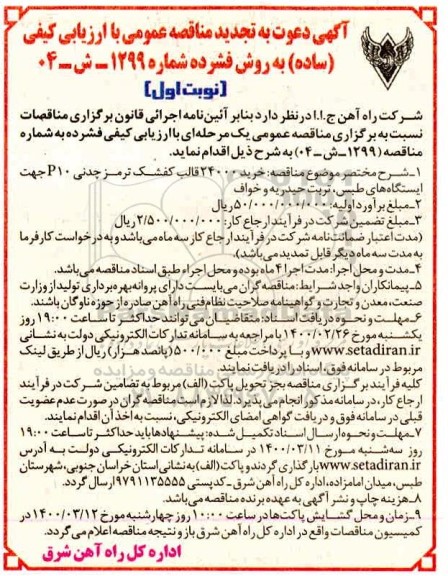 آگهی دعوت به تجدید مناقصه عمومی با ارزیابی کیفی
(ساده) به روش فشرده شماره ۱۲۹۹ـ ش ـ ۰۴
(نوبت اول)
شرکت راه آهن ج.ا.ا در نظر دارد بنابر آئین‌نامه اجرائی قانون برگزاری مناقصات
نسبت به برگزاری مناقصه عمومی یک مرحله‌ای با ارزیابی کیفی فشرده به شماره
مناقصه (۱۲۹۹ـ ش ـ ۰۴) به شرح ذیل اقدام نماید.
۱ـ شرح مختصر موضوع مناقصه: خرید ۲۴۰۰۰ قالب کفشک ترمز چدنی P10 جهت
ایستگاه‌های طبس، تربت حیدریه و خواف
۲ـ مبلغ برآورد اولیه: ۵۰/۰۰۰/۰۰۰/۰۰۰ ریال
۳ـ مبلغ تضمین شرکت در فرآیند ارجاع کار: ۲/۵۰۰/۰۰۰/۰۰۰ ریال
(مدت اعتبار ضمانت‌نامه شرکت در فرآیند ارجاع کار سه ماه می‌باشد و به درخواست کارفرما
به مدت سه ماه دیگر قابل تمدید می‌باشد)
۴ـ مدت و محل اجرا: مدت اجرا ۴ ماه بوده و محل اجراء طبق اسناد مناقصه می‌باشد.
۵ـ پیمانکاران واجد شرایط: مناقصه‌گران می‌بایست دارای پروانه بهره‌برداری تولید از وزارت
صنعت، معدن و تجارت و گواهینامه صلاحیت نظام فنی راه آهن صادره از حوزه ناوگان باشند.
۶ـ مهلت و نحوه دریافت اسناد: متقاضیان می‌توانند حداکثر تا ساعت ۱۹:۰۰ روز
یکشنبه مورخ ۱۴۰۰/۰۲/۲۶ با مراجعه به سامانه تدارکات الکترونیکی دولت به نشانی
www.setadiran.ir و با پرداخت مبلغ ۵۰۰/۰۰۰ (پانصد هزار) ریال از طریق لینک
مربوط در سامانه فوق، اسناد را دریافت نمایند.
کلیه فرآیند برگزاری مناقصه بجز تحویل پاکت (الف) مربوط به تضامین شرکت در فرآیند
ارجاع کار، در سامانه مذکور انجام می‌گیرد. لذا لازم است مناقصه‌گران در صورت عدم عضویت
قبلی در سامانه فوق و دریافت گواهی امضای الکترونیکی، نسبت به اخذ آن اقدام نمایند.
۷ـ مهلت و نحوه ارسال اسناد تکمیل شده: پیشنهادها باید حداکثر تا ساعت ۱۹:۰۰
روز سه‌شنبه مورخ ۱۴۰۰/۰۳/۱۱ در سامانه تدارکات الکترونیکی دولت به آدرس
www.setadiran.ir بارگذاری گردند و پاکت (الف) به نشانی استان خراسان جنوبی، شهرستان
طبس، میدان امامزاده، اداره کل راه آهن شرق ـ کدپستی ۹۷۹۱۱۳۵۵۵۵ ارسال گردد.
۸ـ هزینه چاپ و نشر آگهی به عهده برنده مناقصه می‌باشد.
۹ـ زمان و محل گشایش پاکت‌ها در ساعت ۱۰:۰۰ روز چهارشنبه مورخ ۱۴۰۰/۰۳/۱۲ در
کمیسیون مناقصات واقع در اداره کل راه آهن شرق باز و نتیجه مناقصه اعلام می‌گردد.
اداره کل راه آهن شرق